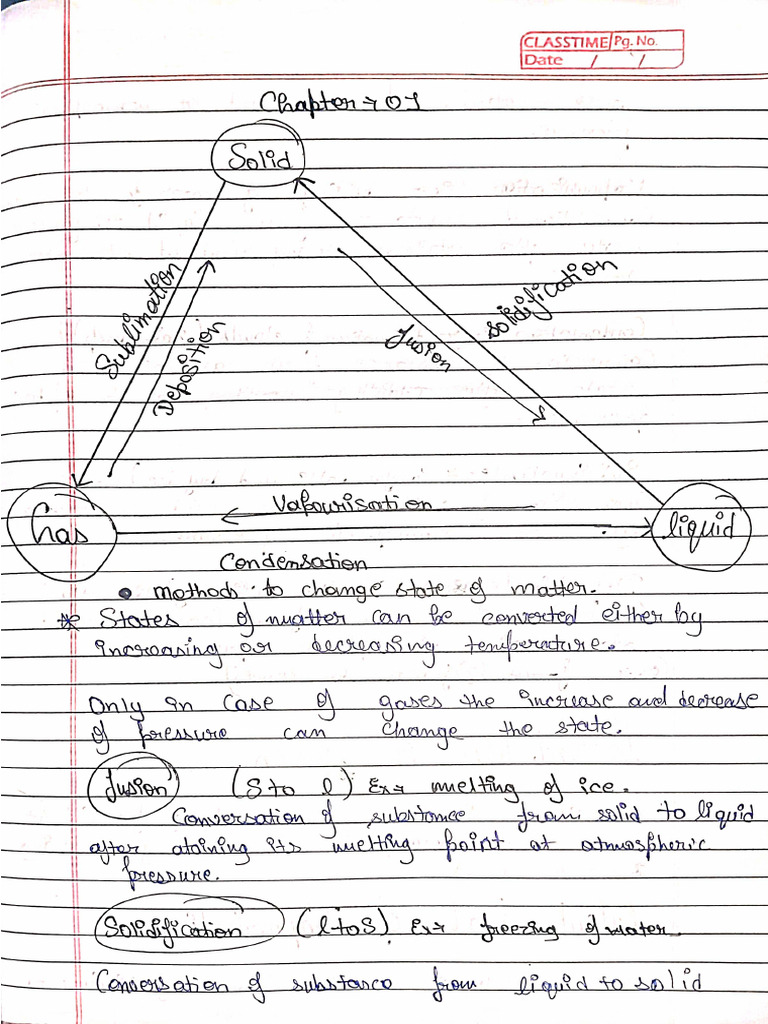 CLASSTIME Pg. No.
Date / /
Chapter → 01
Solid
Sublimation
Deposition
fusion
Solidification
Gas
Vapourisation
liquid
Condensation
• methods to change state of matter.
* States of matter can be converted either by
increasing or decreasing temperature.
Only in case of gases the increase and decrease
of pressure can change the state.
fusion (S to l) Ex→ melting of ice.
Conversation of substance from solid to liquid
after ataining its melting point at atmospheric
pressure.
Solidification (l to S) Ex→ freezing of water
Conversation of substance from liquid to solid